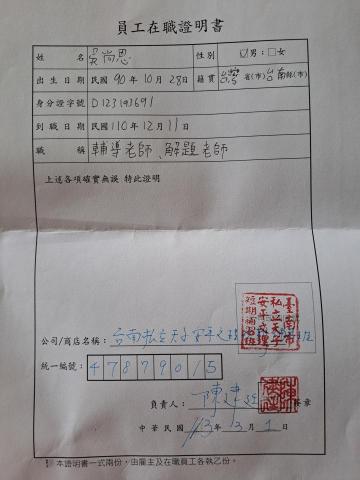 員工在職證明書
姓名 吳尚恩 性別 ☑男：□女
出生日期 民國 90 年 10 月 28 日 籍貫 台灣 省(市) 台南 縣(市)
身分證字號 D123193691
到職日期 民國 110 年 12 月 11 日
職稱 輔導老師、解題老師
上述各項確實無誤 特此證明
公司/商店名稱： 台南私立天子安平文理
臺南市
私立天子
安平文理
短期補習班
統一編號： 47879015
負責人： 陳建 簽章
中華民國 113 年 3 月 1 日
本證明書一式兩份，由雇主及在職員工各執乙份。